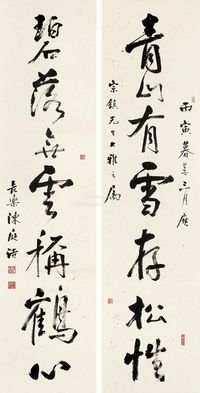 丙寅暮春三月應
青山有雪存松性
宗鎮先生大雅之屬
碧落無雲稱鶴心
長樂陳庭詩